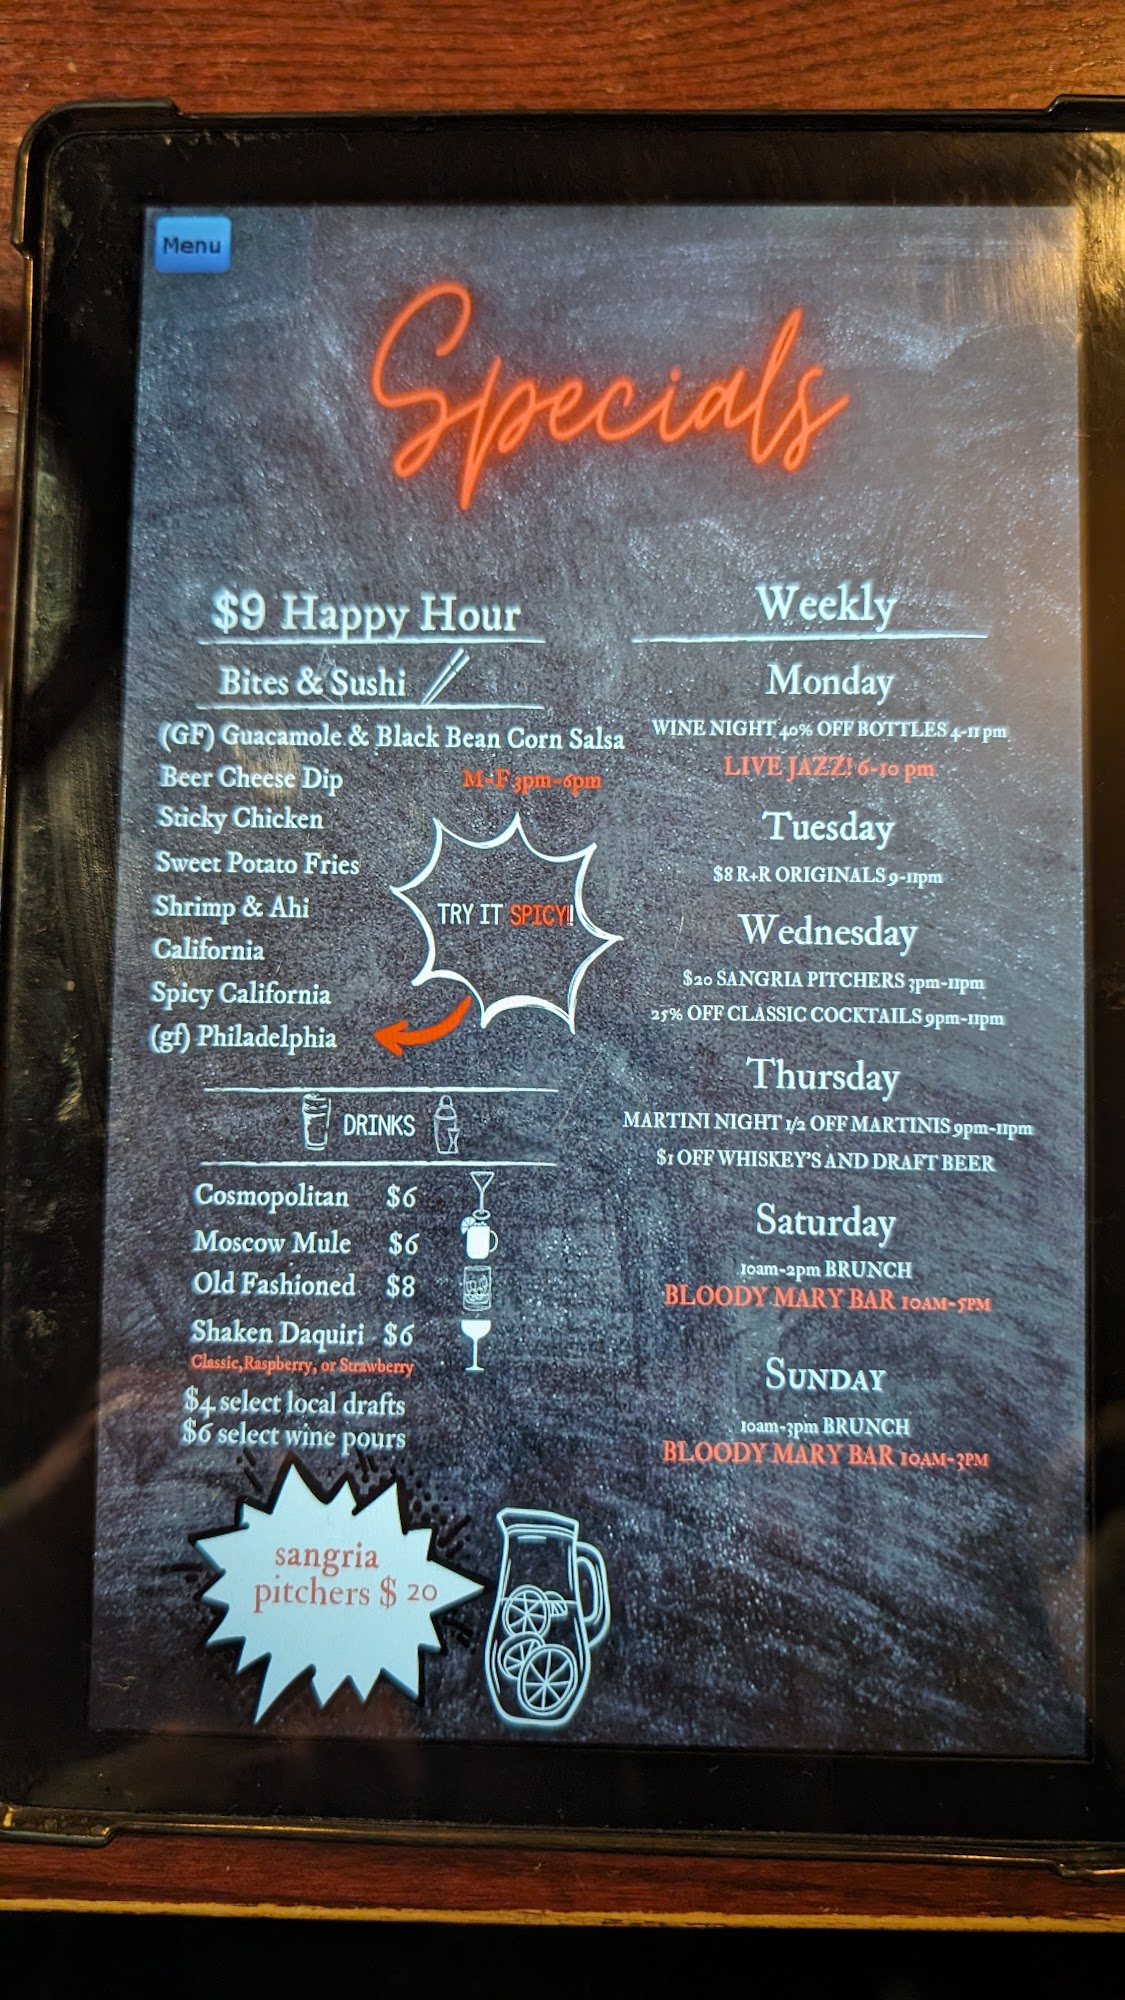 Menu
Specials
$9 Happy Hour
Bites & Sushi
(GF) Guacamole & Black Bean Corn Salsa
Beer Cheese Dip
M-F 3pm-6pm
Sticky Chicken
Sweet Potato Fries
Shrimp & Ahi
California
Spicy California
(gf) Philadelphia
TRY IT SPICY!
DRINKS
Cosmopolitan $6
Moscow Mule $6
Old Fashioned $8
Shaken Daquiri $6
Classic, Raspberry, or Strawberry
$4 select local drafts
$6 select wine pours
sangria
pitchers $ 20
Weekly
Monday
WINE NIGHT 40% OFF BOTTLES 4-11 pm
LIVE JAZZ! 6-10 pm
Tuesday
$8 R+R ORIGINALS 9-11pm
Wednesday
$20 SANGRIA PITCHERS 3pm-11pm
25% OFF CLASSIC COCKTAILS 9pm-11pm
Thursday
MARTINI NIGHT 1/2 OFF MARTINIS 9pm-11pm
$1 OFF WHISKEY'S AND DRAFT BEER
Saturday
10am-2pm BRUNCH
BLOODY MARY BAR 10AM-5PM
SUNDAY
10am-3pm BRUNCH
BLOODY MARY BAR 10AM-3PM